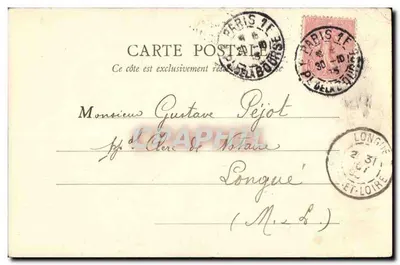 CARTE POSTALE
Ce côté est exclusivement
PARIS 1E
30 -10
PL. DE LA BOURSE
PARIS 1E
30 -10
PL. DE LA BOURSE
Monsieur Gustave Péjot
ppal Clerc de Notaire
LONGUÉ
2 31
-ET-LOIRE
Longué
(M.-L.)